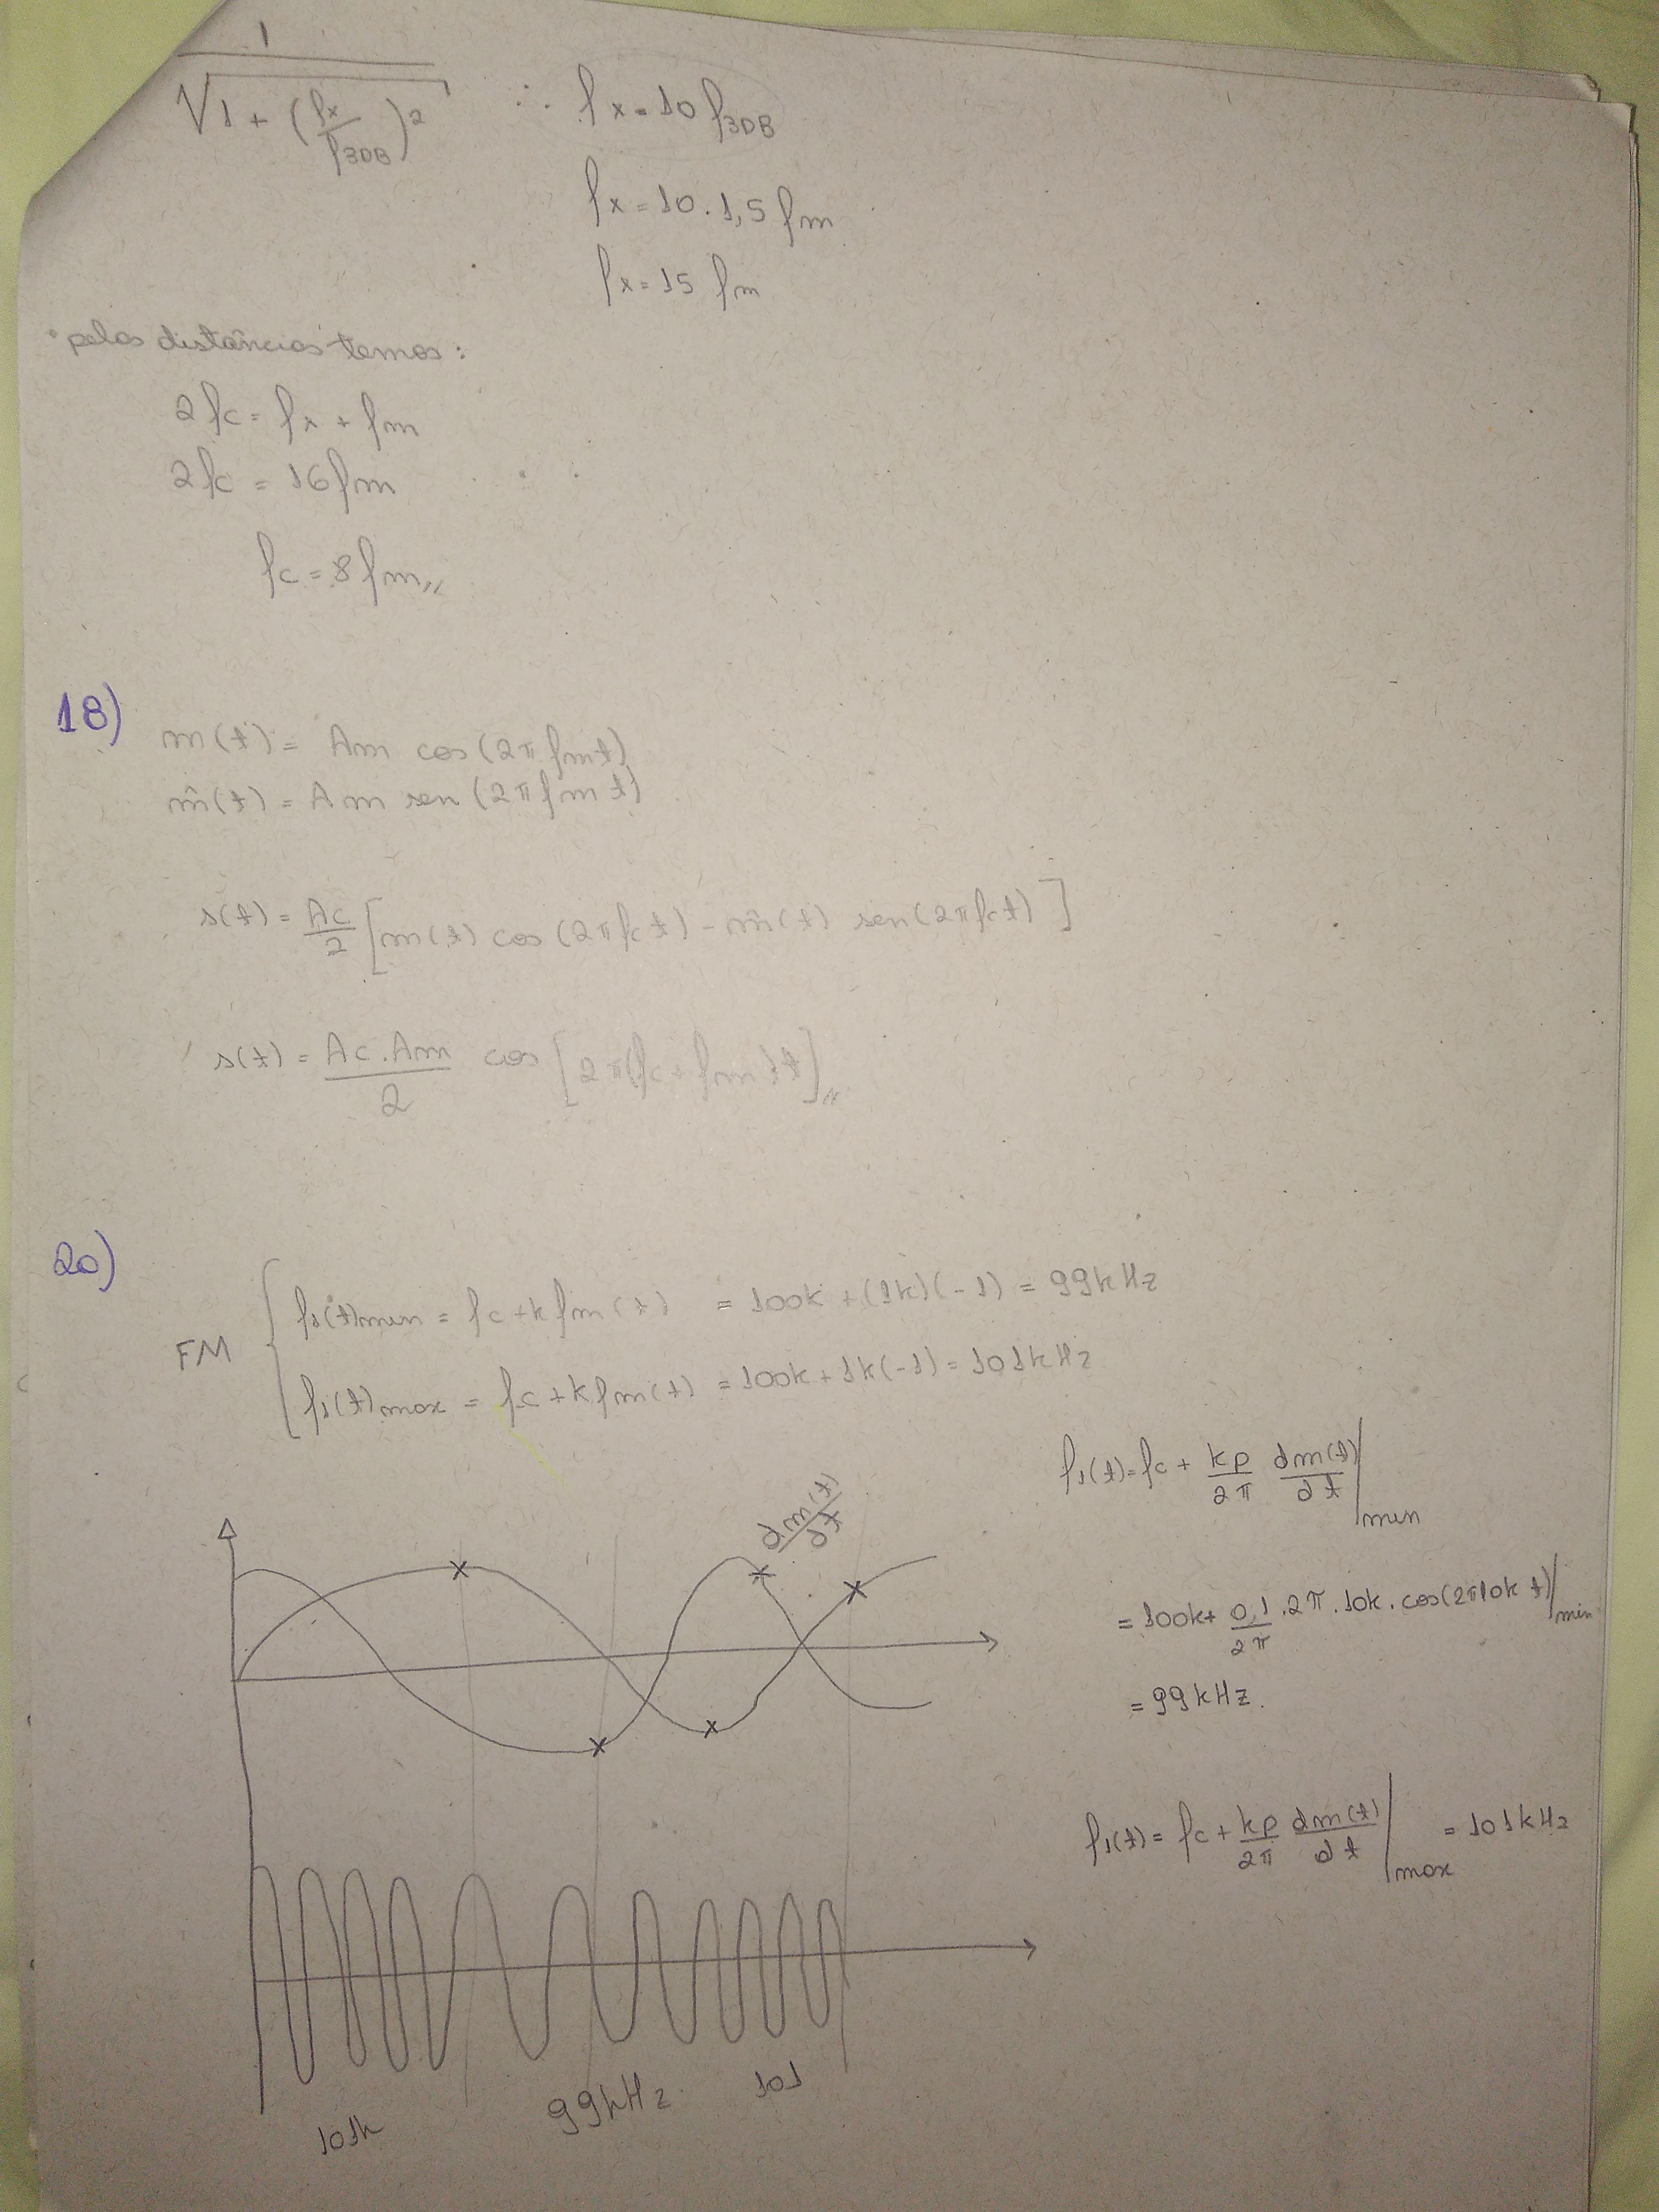 1/√(1 + (fx/f3DB)²) ∴ fx = 10 f3DB
fx = 10 . 1,5 fm
fx = 15 fm
• pelas distâncias temos:
2fc = fx + fm
2fc = 16fm
fc = 8fm,,
18)
m(t) = Am cos(2π fmt)
m̂(t) = Am sen(2π fm t)
s(t) = Ac/2 [m(t) cos(2π fc t) - m̂(t) sen(2π fc t)]
s(t) = Ac.Am/2 cos[2π(fc + fm)t],,
20)
FM
fi(t)min = fc + kfm(t) = 100k + (1k)(-1) = 99kHz
fi(t)max = fc + kfm(t) = 100k + 1k(-1) = 101kHz
fi(t) = fc + kp/2π dm(t)/dt |min
dm(t)/dt
= 100k + 0,1/2π . 2π . 10k . cos(2π10k t)|min
= 99kHz.
fi(t) = fc + kp/2π dm(t)/dt |max = 101kHz
101k 99kHz 101